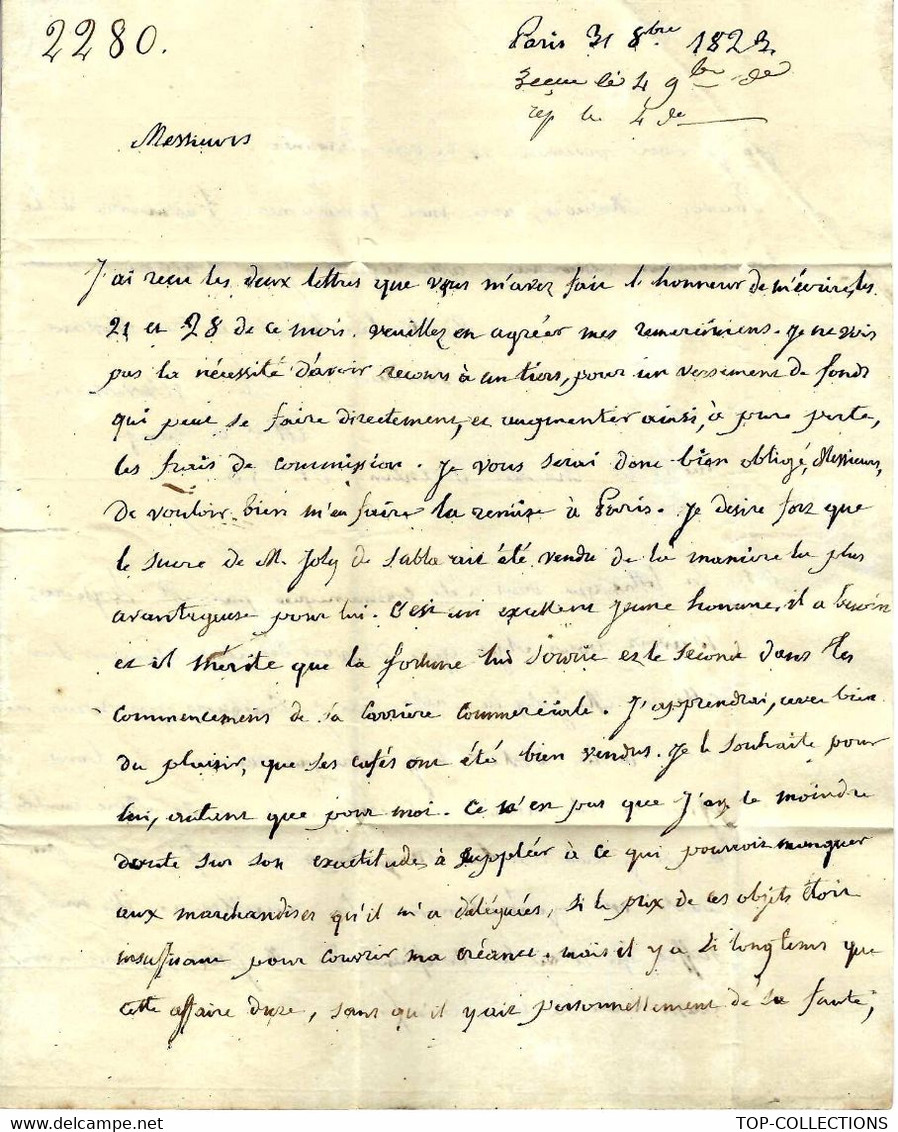 2280.
Paris 31 8bre 1823
reçue le 4 9bre de
rep le 4 de
Messieurs
J'ai reçu les deux lettres que vous m'avez fait l'honneur de m'écrire, les
21 et 28 de ce mois. veuillez en agréer mes remerciemens. Je ne vois
pas la nécessité d'avoir recours à un tiers, pour un versement de fonds
qui peut se faire directement, et augmenter ainsi, à pure perte,
les frais de commission. Je vous serai donc bien obligé, Messieurs,
de vouloir bien m'en faire la remise à Paris. Je desire fort que
le sucre de M. Joly de Sabla ait été vendu de la manière la plus
avantageuse pour lui. C'est un excellent jeune homme, il a besoin
et il mérite que la fortune lui sourie et le seconde dans les
commencemens de sa carrière commerciale. J'apprendrai, avec bien
du plaisir, que ses cafés ont été bien vendus. Je le souhaite pour
lui, autant que pour moi. Ce n'est pas que J'aye le moindre
doute sur son exactitude à suppléer à ce qui pourroit manquer
aux marchandises qu'il m'a déléguées, si le prix de ces objets étoit
insuffisant pour couvrir ma créance. mais il y a si longtems que
cette affaire dure, sans qu'il y ait personnellement de sa faute,
TOP-COLLECTIONS